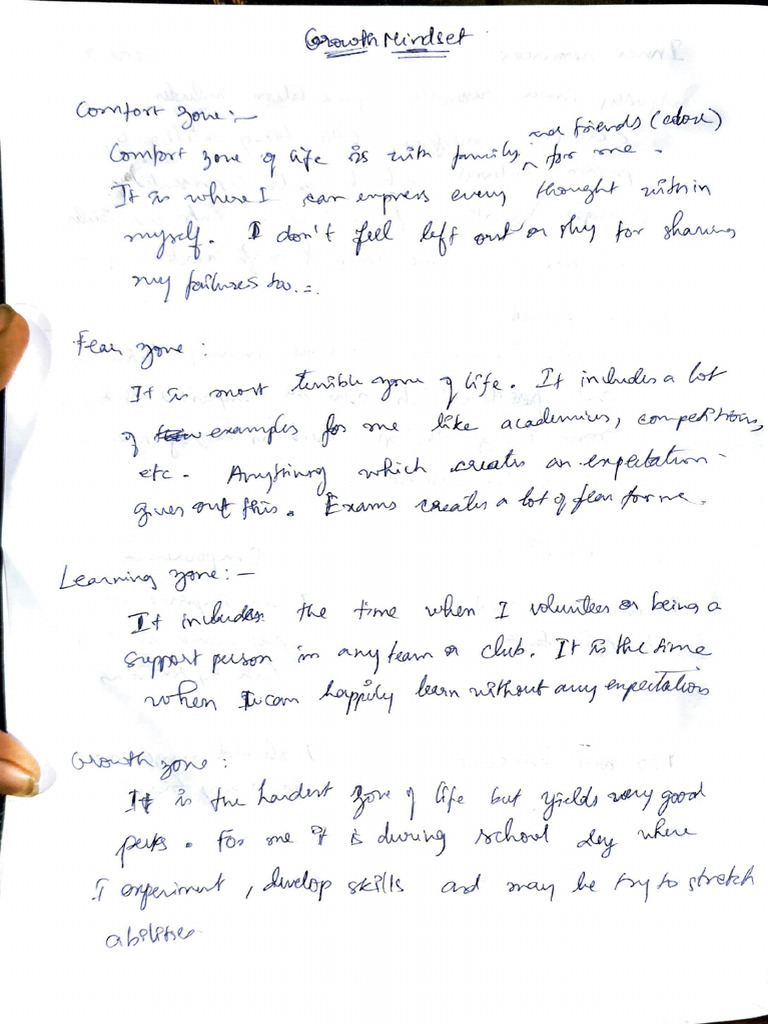 Growth Mindset
Comfort zone :-
and friends (close)
Comfort zone of life is with family ^ for me.
It is where I can express every thought within
myself. I don't feel left out or shy for sharing
my failures too.
Fear zone :
It is most terrible zone of life. It includes a lot
of examples for me like academics, competitions,
etc. Anything which creates an expectation
gives out this. Exams creates a lot of fear for me.
Learning zone :-
It includes the time when I volunteer or being a
support person in any team or club. It is the time
when I can happily learn without any expectations
Growth zone :
It is the hardest zone of life but yields very good
perks. For me it is during school day where
I experiment, develop skills and may be try to stretch
abilities